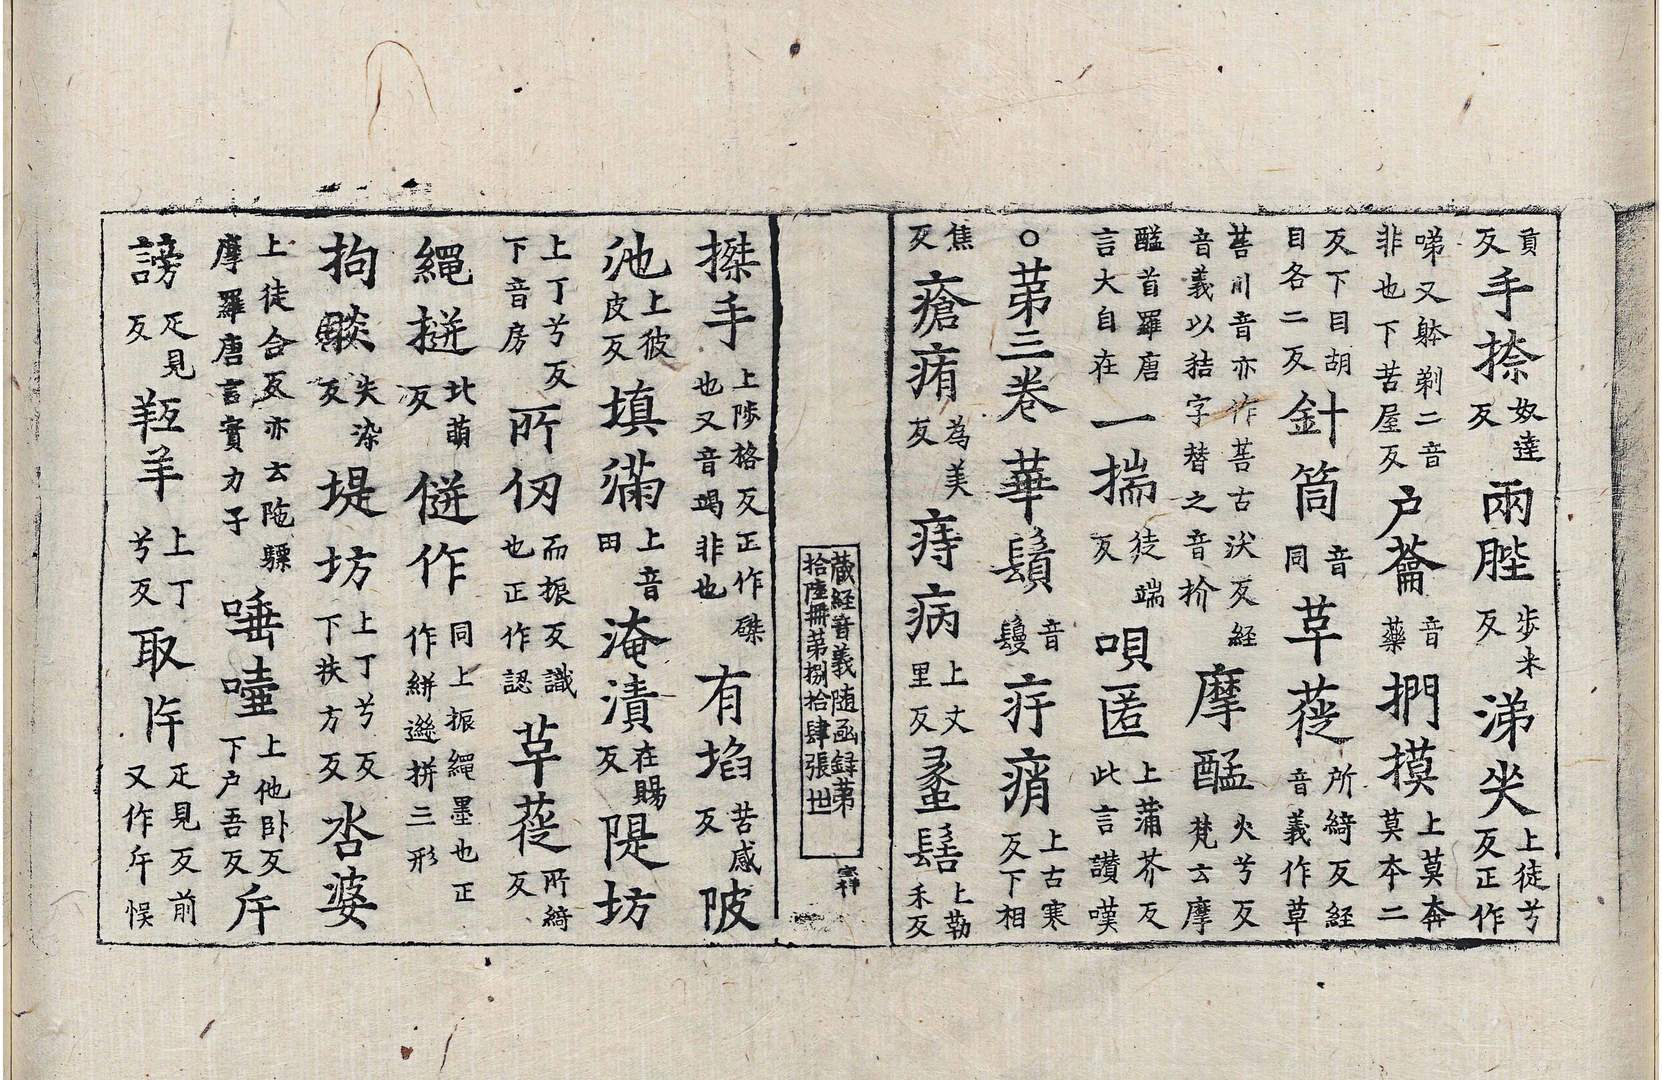 貢反手捺奴達反兩䏶步米反涕淚上徒兮反正作
啼又躰剃二音非也下苦屋反户蘥音藥捫摸上莫奔反下目胡莫本二
目各二反針筒音同草蓰所綺反經音義作草
菩川音亦作菩古沃反經音義以秸字替之音扴摩醯火兮反梵云摩
醯首羅唐言大自在一揣徒端反唄匿上蒲芥反此言讃嘆
○苐三卷華鬘音鬘疛痟上古寒反下相
焦反瘡痏為美反痔病上丈里反蝨髻上勒禾反
藏經音義随函録苐拾陸冊苐捌拾肆張世
宗祥
搩手上陟格反正作磔也又音竭非也有埳苦感反陂
池上彼皮反填滿上音田淹漬在賜反隄坊
上丁兮反下音房所仞而振反識也正作認草蓰所綺反
繩搓北萌反偋作同上振繩墨也正作絣遻拼三形
拘睒失染反堤坊上丁兮反下扶方反沓婆
上徒合反亦云陁驃摩羅唐言實力子唾壷上他卧反下户吾反斤
謗疋見反羝羊上丁兮反取斨疋見反前又作斤悮